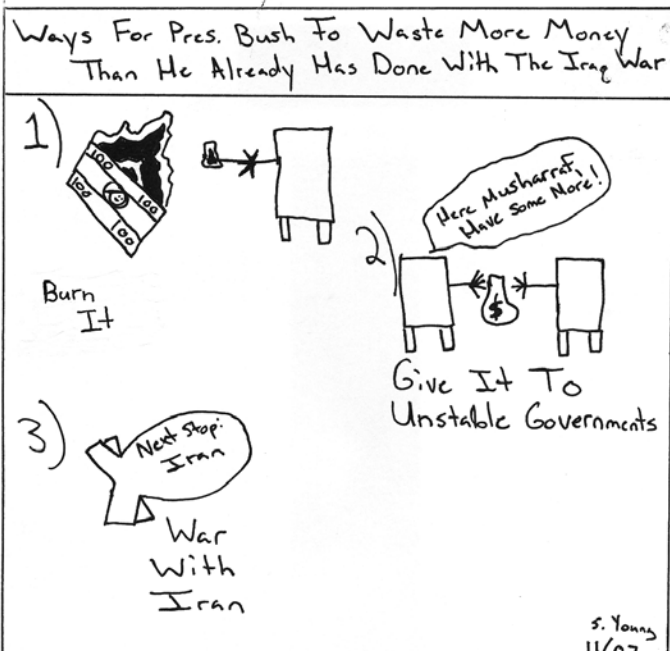 Ways For Pres. Bush To Waste More Money
Than He Already Has Done With The Iraq War
1)
100
100
100
100
Burn
It
2)
Here Musharraf,
Have Some More!
$
Give It To
Unstable Governments
3)
Next Stop:
Iran
War
With
Iran
S. Young
11/07